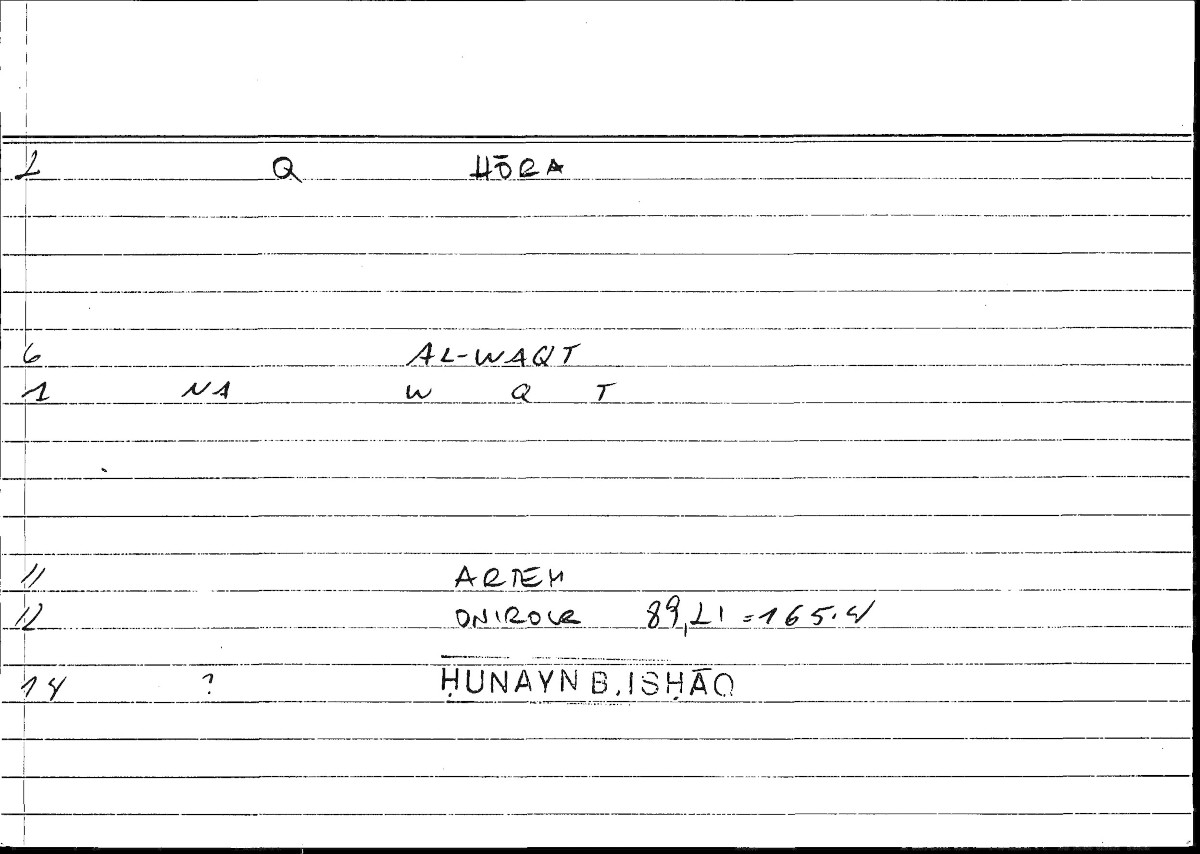 2 Q HŌRA
6 AL-WAQT
1 NA W Q T
11 ARTEM
12 ONIROCR 89,21=165.4
14 ? ḤUNAYN B. ISḤĀQ